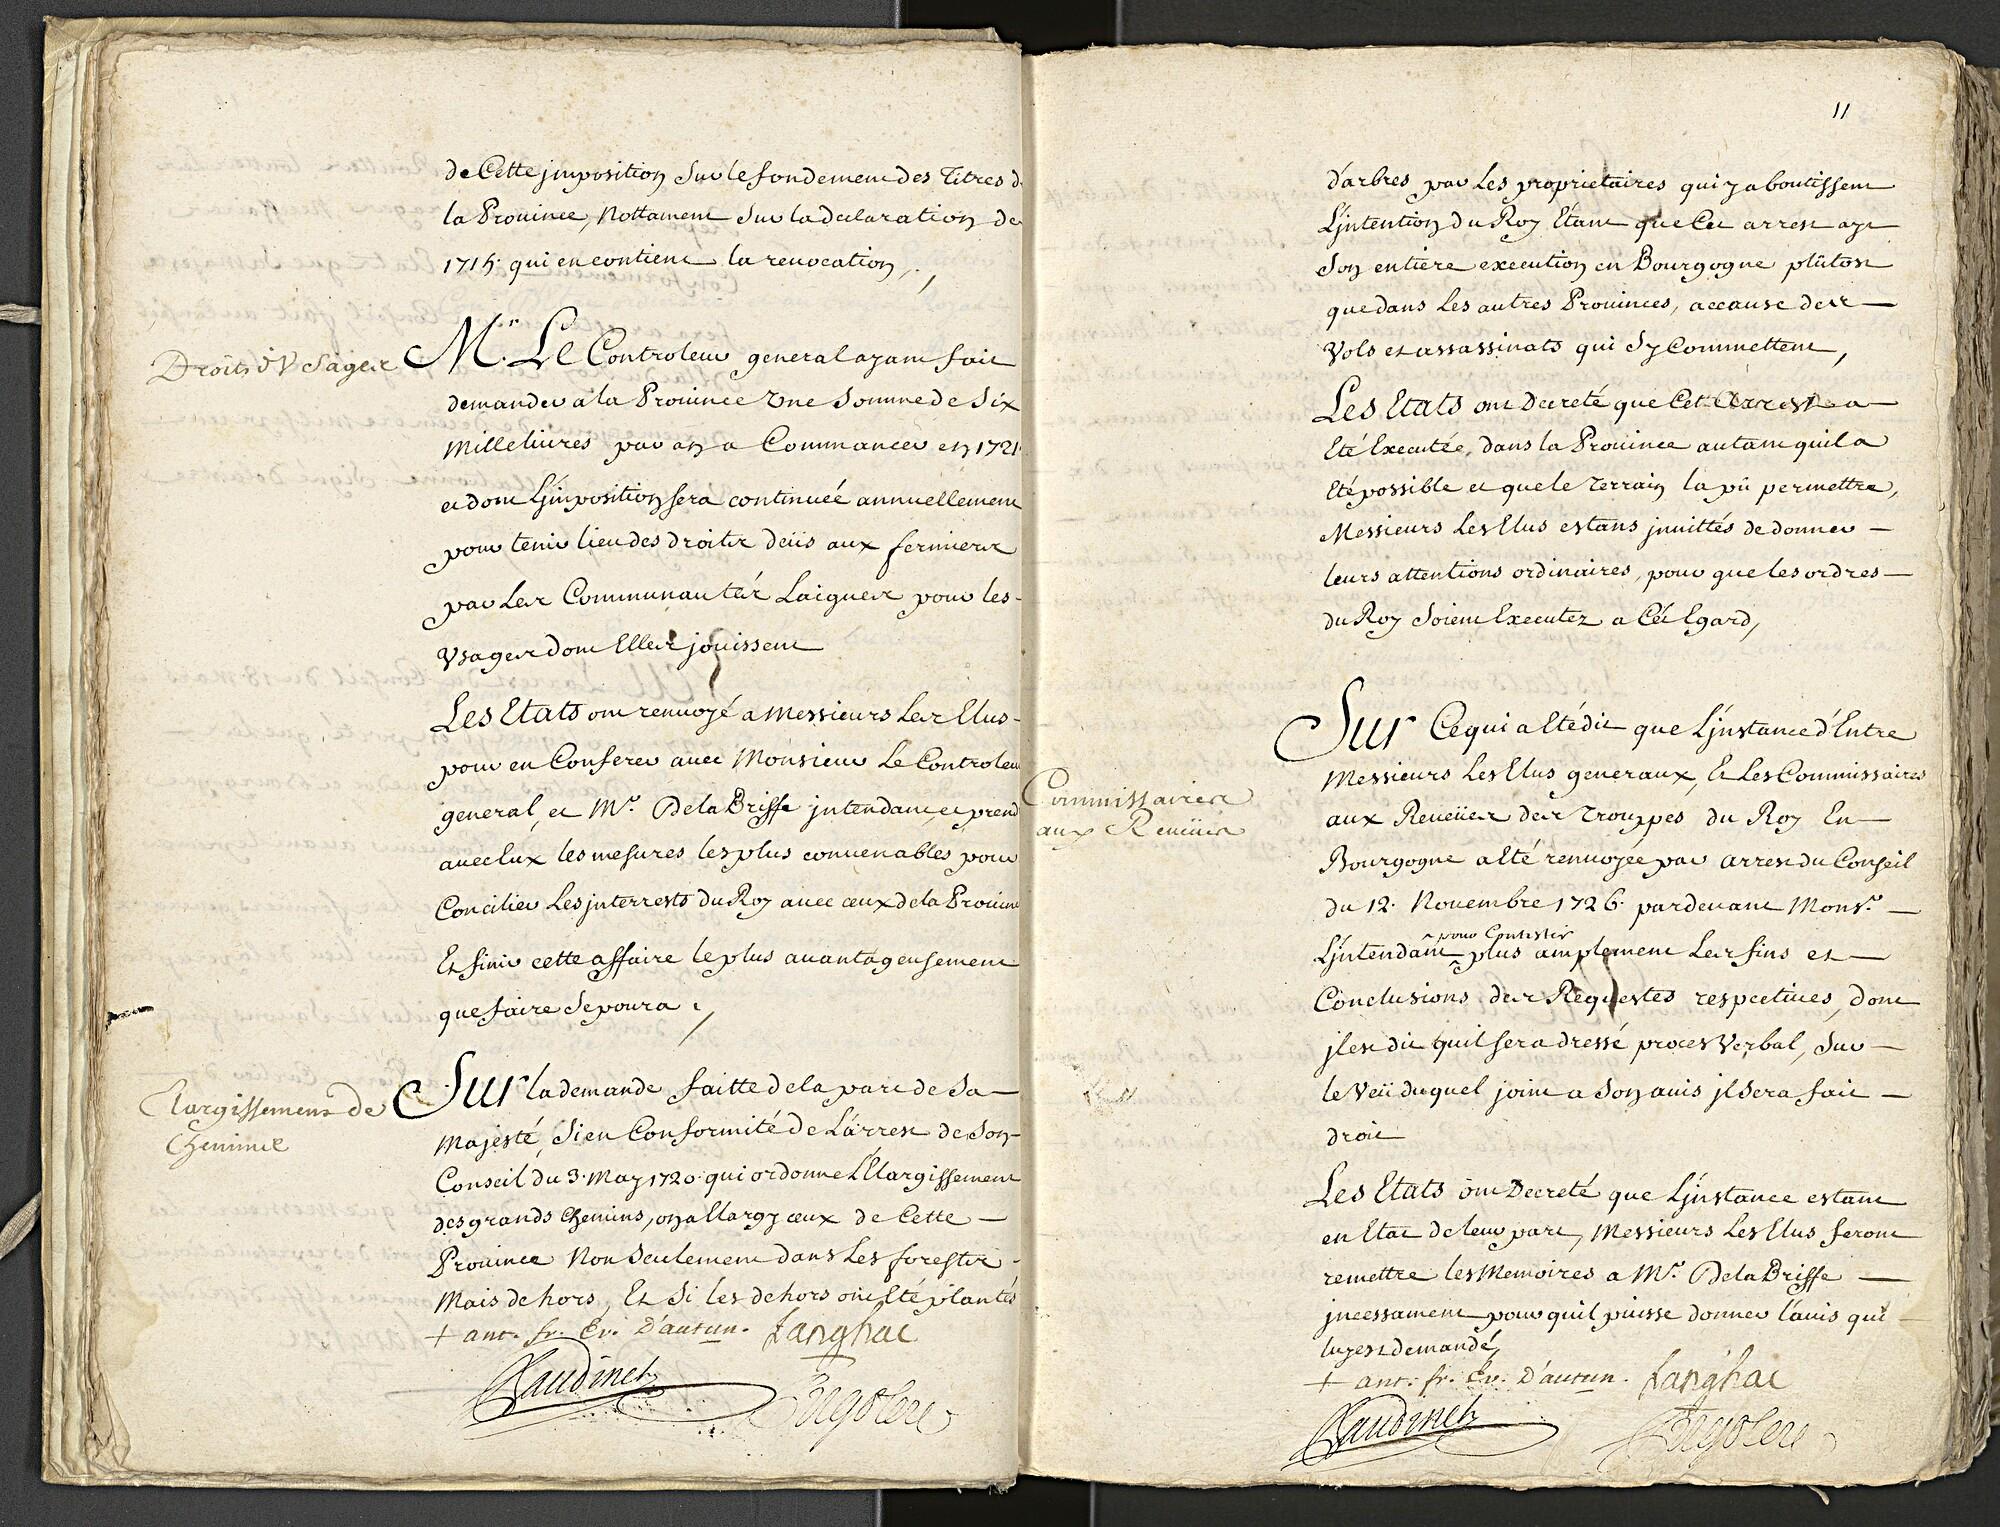 de Cette jmposition Sur le fondement des Titres de
la Prouince, Nottament Sur la declaration de
1715. qui en contient la reuocation,.
Droits d'Vsages
Mr. Le Controleur general ayant fait
demander a la Prouince Vne Somme de Six
Mille liures par an a Commancer en 1721.
et dont L'jmposition sera continuéé annuellement
pour tenir lieu des droits deüs aux fermiers
par Les Communautés Laiques pour les
Vsages dont Elles jouissent
Les Etats ont renuoyé a Messieurs Les Elus
pour en Conferer auec Monsieur Le Controleur
general, et Mr. De la Briffe jntendant, et prend
auec Eux les mesures les plus conuenables pour
Concilier Les jnterrests du Roy auec ceux de la Prouince
Et finir cette affaire le plus auantageusement
que faire Se poura.
Elargissement de
Chemins
Sur la demande faitte de la part de Sa
Majesté, Si en Conformité de L'arrest de Son
Conseil du 3. May 1720. qui ordonne L'Elargissement
des grands Chemins, on a Elargy ceux de Cette
Prouince Non Seulement dans Les forests
Mais dehors, Et Si les dehors ont Eté plantés
+ ant. fr. Ev. D'autun. Langhac
Baudinet
Rigoley
11
d'arbres par Les proprietaires qui y aboutissent
L'jntention du Roy Etant que Cet arrest aye
Son entiere execution en Bourgogne plûtost
que dans Les autres Prouinces, accause des
Vols et assassinats qui S'y Commettent,
Les Etats ont Decreté que Cet Arrest a
Eté Executée, dans la Prouince autant quil a
Eté possible et que le Terrain la pû permettre,
Messieurs Les Elus estans jnuittés de donner
leurs attentions ordinaires, pour que les ordres
du Roy Soient Executez a Cét Egard,
Commissaires
aux Reuües
Sur Ce qui a Eté dit que L'jnstance d'Entre
Messieurs Les Elus generaux, Et Les Commissaires
aux Reueües des Trouppes du Roy En
Bourgogne a Eté renuoyée par arrest du Conseil
du 12. Nouembre 1726. pardeuant Monsr.
^ pour Contester
L'jntendant ^ plus amplement Les fins et
Conclusions des Requestes respectiues, dont
jl est dit quil sera dressé proces Verbal, Sur
le Veü duquel joint a Son auis jl Sera fait
droit
Les Etats ont Decreté que L'jnstance estant
en Etat de leur part, Messieurs Les Elus feront
remettre les Memoires a Mr. De la Briffe
jncessament pour quil puisse donner l'auis qui
luy est demandé,
+ ant. fr. Ev. D'autun. Langhac
Baudinet
Rigoley